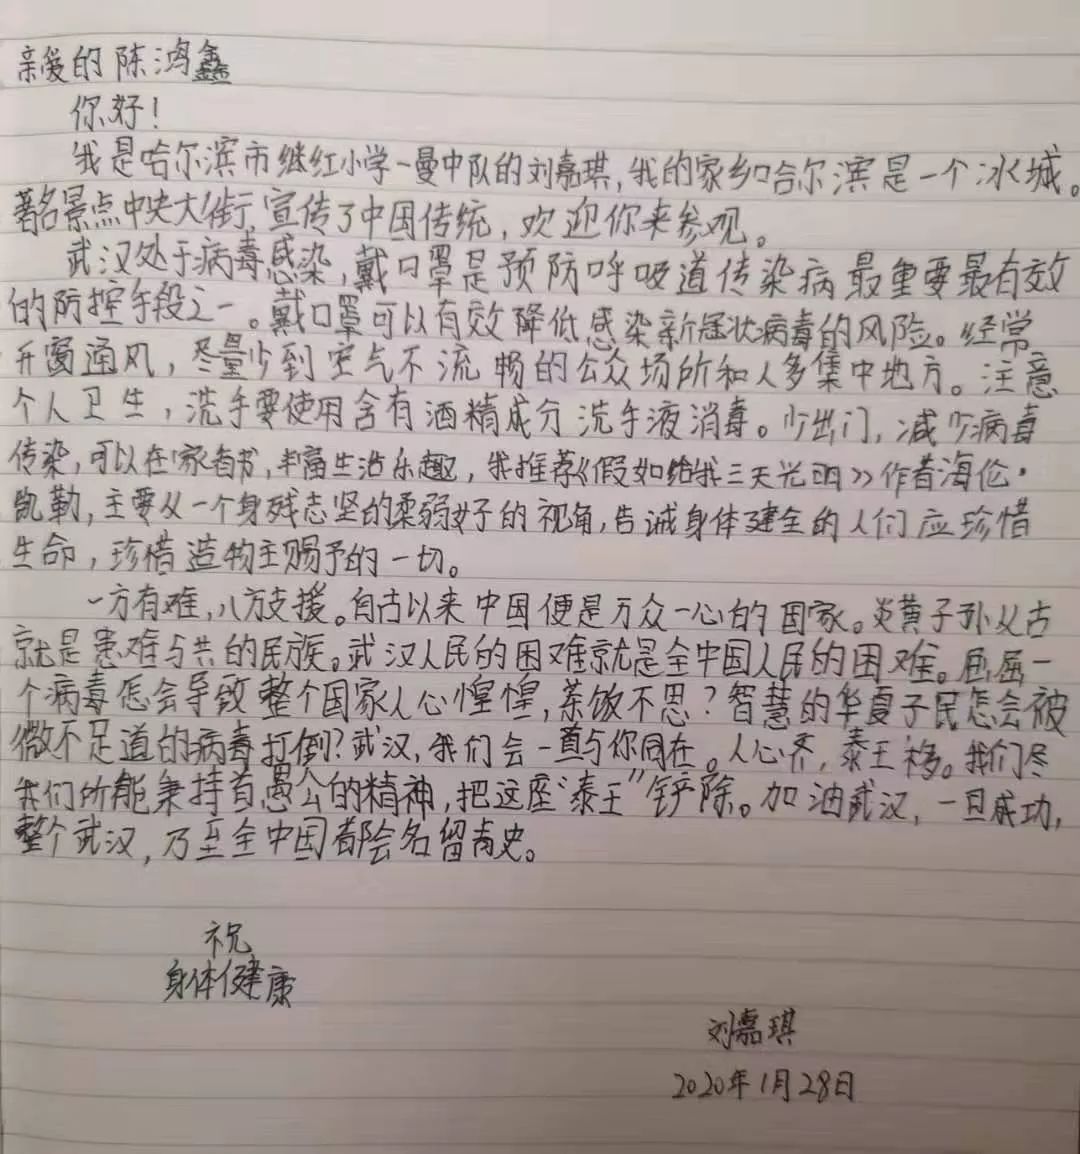 亲爱的陈鸿鑫
你好！
我是哈尔滨市继红小学一曼中队的刘嘉琪，我的家乡哈尔滨是一个冰城。
著名景点中央大街，宣传了中国传统，欢迎你来参观。
武汉处于病毒感染，戴口罩是预防呼吸道传染病最重要最有效
的防控手段之一。戴口罩可以有效降低感染新冠状病毒的风险。经常
开窗通风，尽量少到空气不流畅的公众场所和人多集中地方。注意
个人卫生，洗手要使用含有酒精成分洗手液消毒。少出门，减少病毒
传染，可以在家看书，丰富生活乐趣，我推荐《假如给我三天光明》作者海伦·
凯勒，主要从一个身残志坚的柔弱女子的视角，告诫身体健全的人们应珍惜
生命，珍惜造物主赐予的一切。
一方有难，八方支援。自古以来中国便是万众一心的国家。炎黄子孙从古
就是患难与共的民族。武汉人民的困难就是全中国人民的困难。区区一
个病毒怎会导致整个国家人心惶惶，茶饭不思？智慧的华夏子民怎会被
微不足道的病毒打倒？武汉，我们会一直与你同在。人心齐，泰王移。我们尽
我们所能秉持着愚公的精神，把这座“泰王”铲除。加油武汉，一旦成功，
整个武汉，乃至全中国都会名留青史。
祝
身体健康
刘嘉琪
2020年1月28日